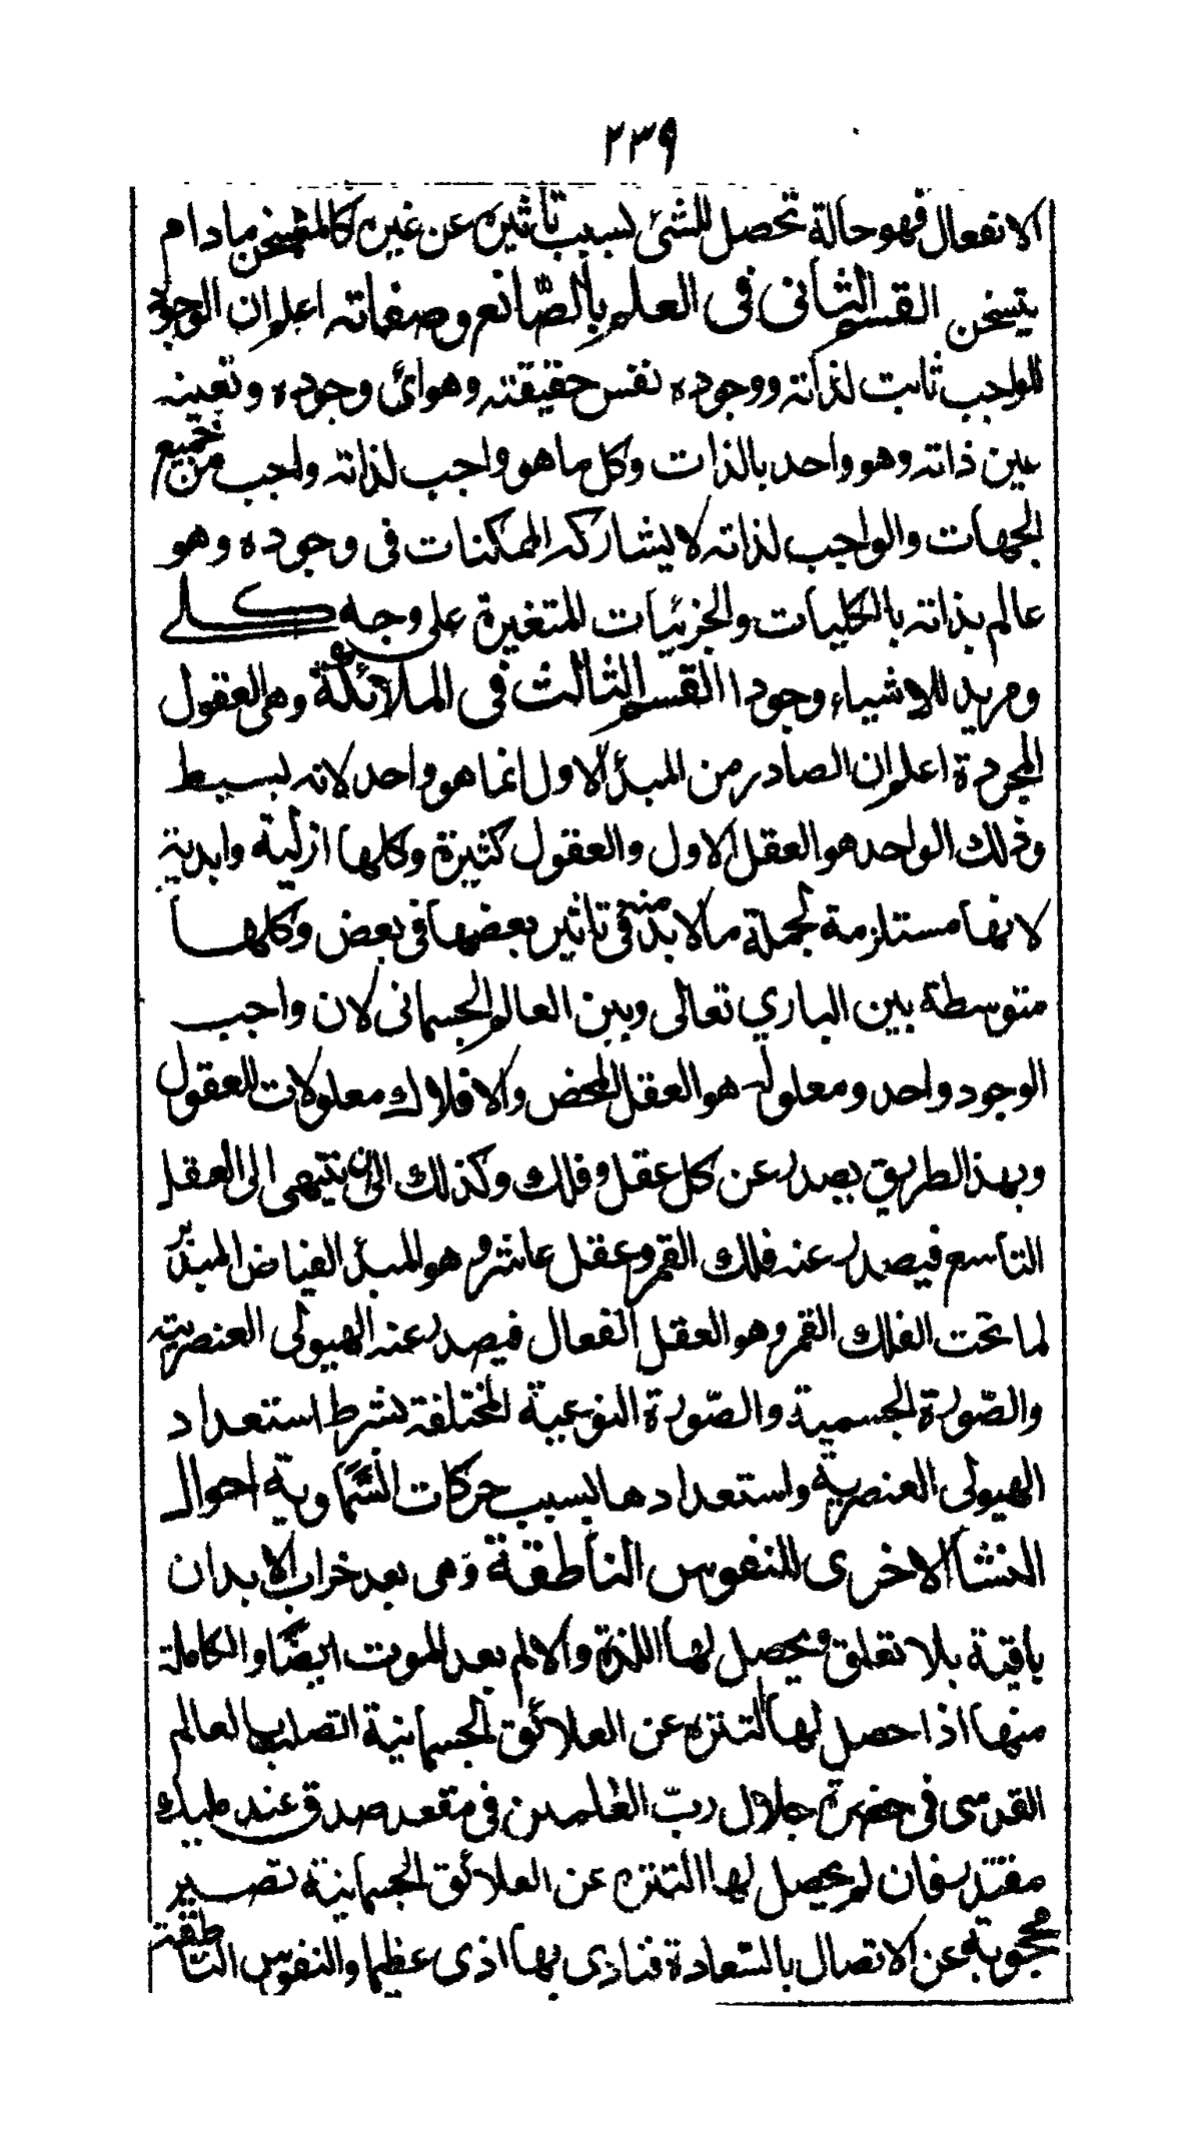 ٢٣٩
الانفعال فهو حالة تحصل للشئ بسبب تأثيره عن غيره كالمتسخن مادام
يتسخن القسم الثانى فى العلم بالصّانع وصفاته اعلم ان الوجود
للواجب ثابت لذاته ووجوده نفس حقيقته وهو اى وجوده وتعينه
عين ذاته وهو واحد بالذات وكل ما هو واجب لذاته واجب من جميع
الجهات والواجب لذاته لا يشاركه الممكنات فى وجوده وهو
عالم بذاته بالكليات والجزئيات المتغيرة على وجه كلى
ومريد للاشياء وجودا القسم الثالث فى الملائكة وهى العقول
المجردة اعلم ان الصادر من المبدأ الاول انما هو واحد لانه بسيط
وذلك الواحد هو العقل الاول والعقول كثيرة وكلها ازلية وابدية
لانها مستلزمة لجملة ما لا بد منه فى تاثير بعضها فى بعض وكلها
متوسطة بين الباري تعالى وبين العالم الجسمانى لان واجب
الوجود واحد ومعلوله هو العقل المحض والافلاك معلولات للعقول
وبهذا الطريق يصدر عن كل عقل وفلك وكذلك الى ان ينتهى الى العقل
التاسع فيصدر عنه فلك القمر وعقل عاشر وهو المبدأ الفياض المدبر
لما تحت الفلك القمر وهو العقل الفعال فيصدر عنه الهيولى العنصرية
والصّورة الجسمية والصّورة النوعية المختلفة بشرط استعداد
الهيولى العنصرية واستعدادها بسبب حركات السَّماوية احوال
النشأ الاخرى للنفوس الناطقة وهى بعد خراب الابدان
باقية بلا تعلق ويحصل لها اللذة والالم بعد الموت ايضًا والكاملة
منها اذا حصل لها التنزه عن العلائق الجسمانية اتصلب بالعالم
القدسى فى حضرة جلال ربّ العلمين فى مقعد صدق عند مليك
مقتدر فان لم يحصل لها التنزه عن العلائق الجسمانية تصير
محجوبة عن الاتصال بالسّعادة فتاذى بها اذى عظيما والنفوس الناطقة